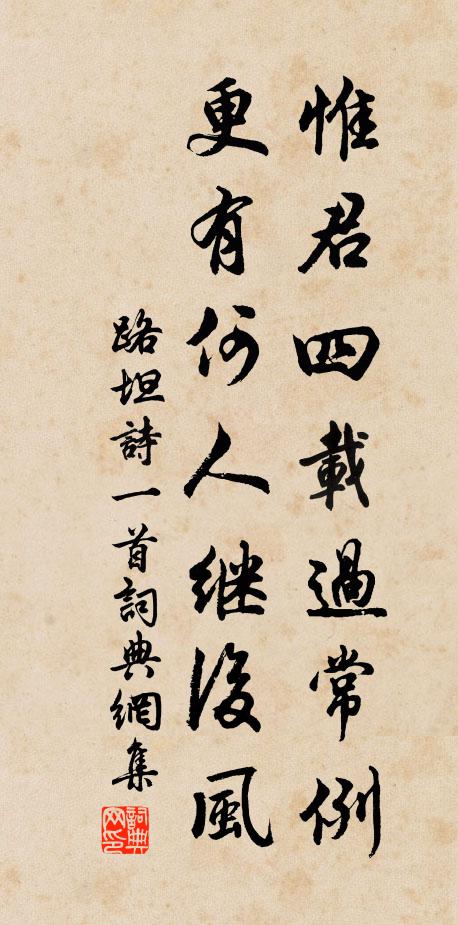 惟君四載過常例
更有何人继後風
路坦詩一首詞典網集
詞典網印